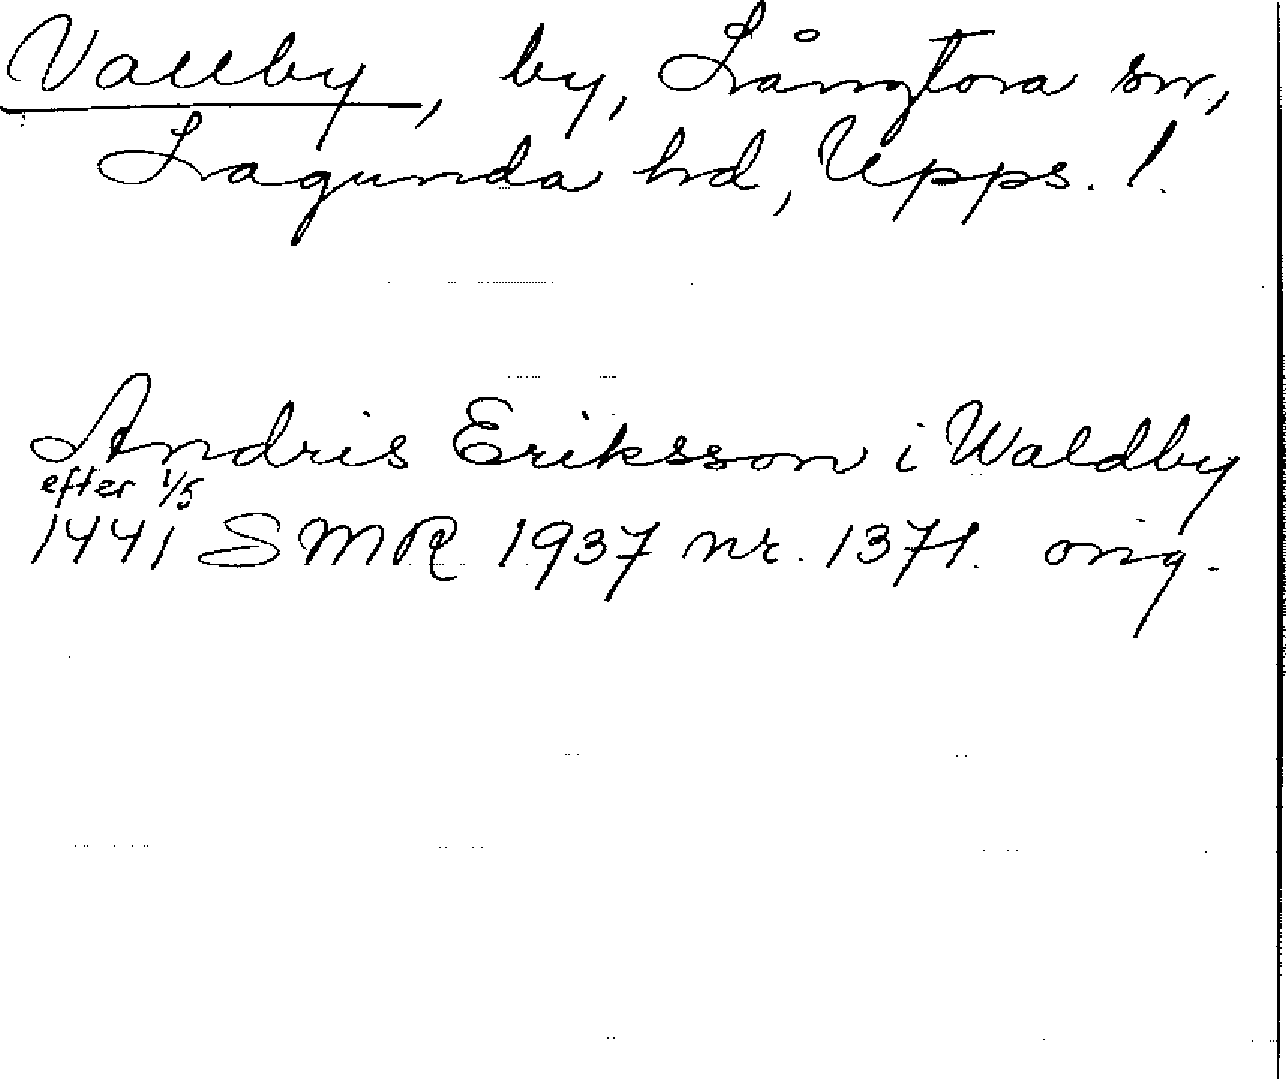 Vallby, by, Långtora sn,
Lagunda hd, Upps. l.
Andris Eriksson i Waldby
efter 1/5
1441 SMR 1937 nr. 1371. orig.